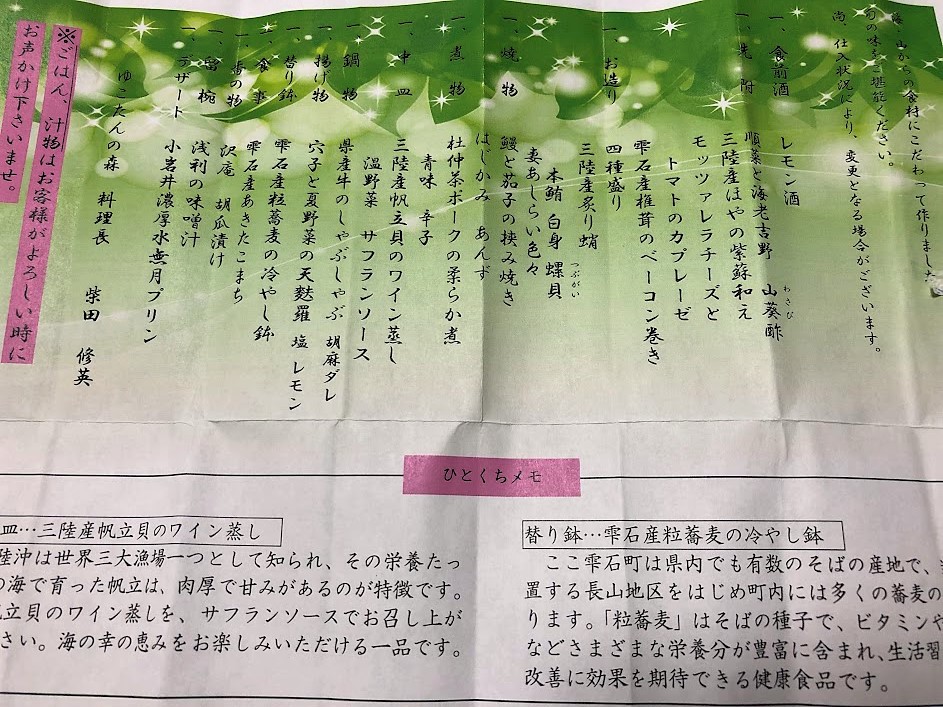 海、山からの食材にこだわって作りました
旬の味をご堪能ください。
尚、仕入状況により、変更となる場合がございます。
一、食前酒 レモン酒
一、先附 順菜と海老吉野 山葵酢
わさび
三陸産はやの紫蘇和え
モッツァレラチーズと
トマトのカプレーゼ
雫石産椎茸のベーコン巻き
一、お造り 四種盛り
三陸産炙り蛸
本鮪 白身 螺貝
つぶがい
妻あしらい色々
一、焼物 鰻と茄子の挟み焼き
はじかみ あんず
一、煮物 杜仲茶ポークの柔らか煮
青味 辛子
一、中皿 三陸産帆立貝のワイン蒸し
温野菜 サフランソース
一、鍋物 県産牛のしゃぶしゃぶ 胡麻ダレ
一、揚げ物 穴子と夏野菜の天麩羅 塩 レモン
一、替り鉢 雫石産粒蕎麦の冷やし鉢
一、食事 雫石産あきたこまち
一、香の物 沢庵 胡瓜漬け
一、留椀 浅利の味噌汁
一、デザート 小岩井濃厚水無月プリン
ゆこたんの森 料理長 柴田 修英
※ごはん、汁物はお客様がよろしい時に
お声かけ下さいませ。
ひとくちメモ
皿…三陸産帆立貝のワイン蒸し
陸沖は世界三大漁場一つとして知られ、その栄養たっ
の海で育った帆立は、肉厚で甘みがあるのが特徴です。
立貝のワイン蒸しを、サフランソースでお召し上が
さい。海の幸の恵みをお楽しみいただける一品です。
替り鉢…雫石産粒蕎麦の冷やし鉢
ここ雫石町は県内でも有数のそばの産地で、
置する長山地区をはじめ町内には多くの蕎麦の
ります。「粒蕎麦」はそばの種子で、ビタミンや
などさまざまな栄養分が豊富に含まれ、生活習
改善に効果を期待できる健康食品です。